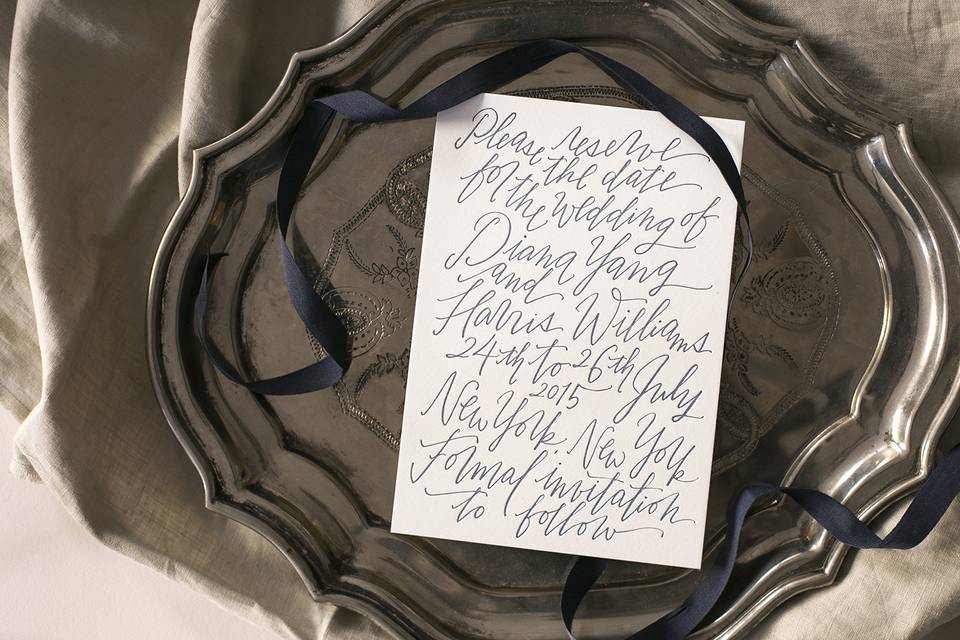 Please reserve
the date
for the wedding of
Diana Yang
and
Harris Williams
24th to 26th July
2015
New York, New York
Formal invitation
to follow